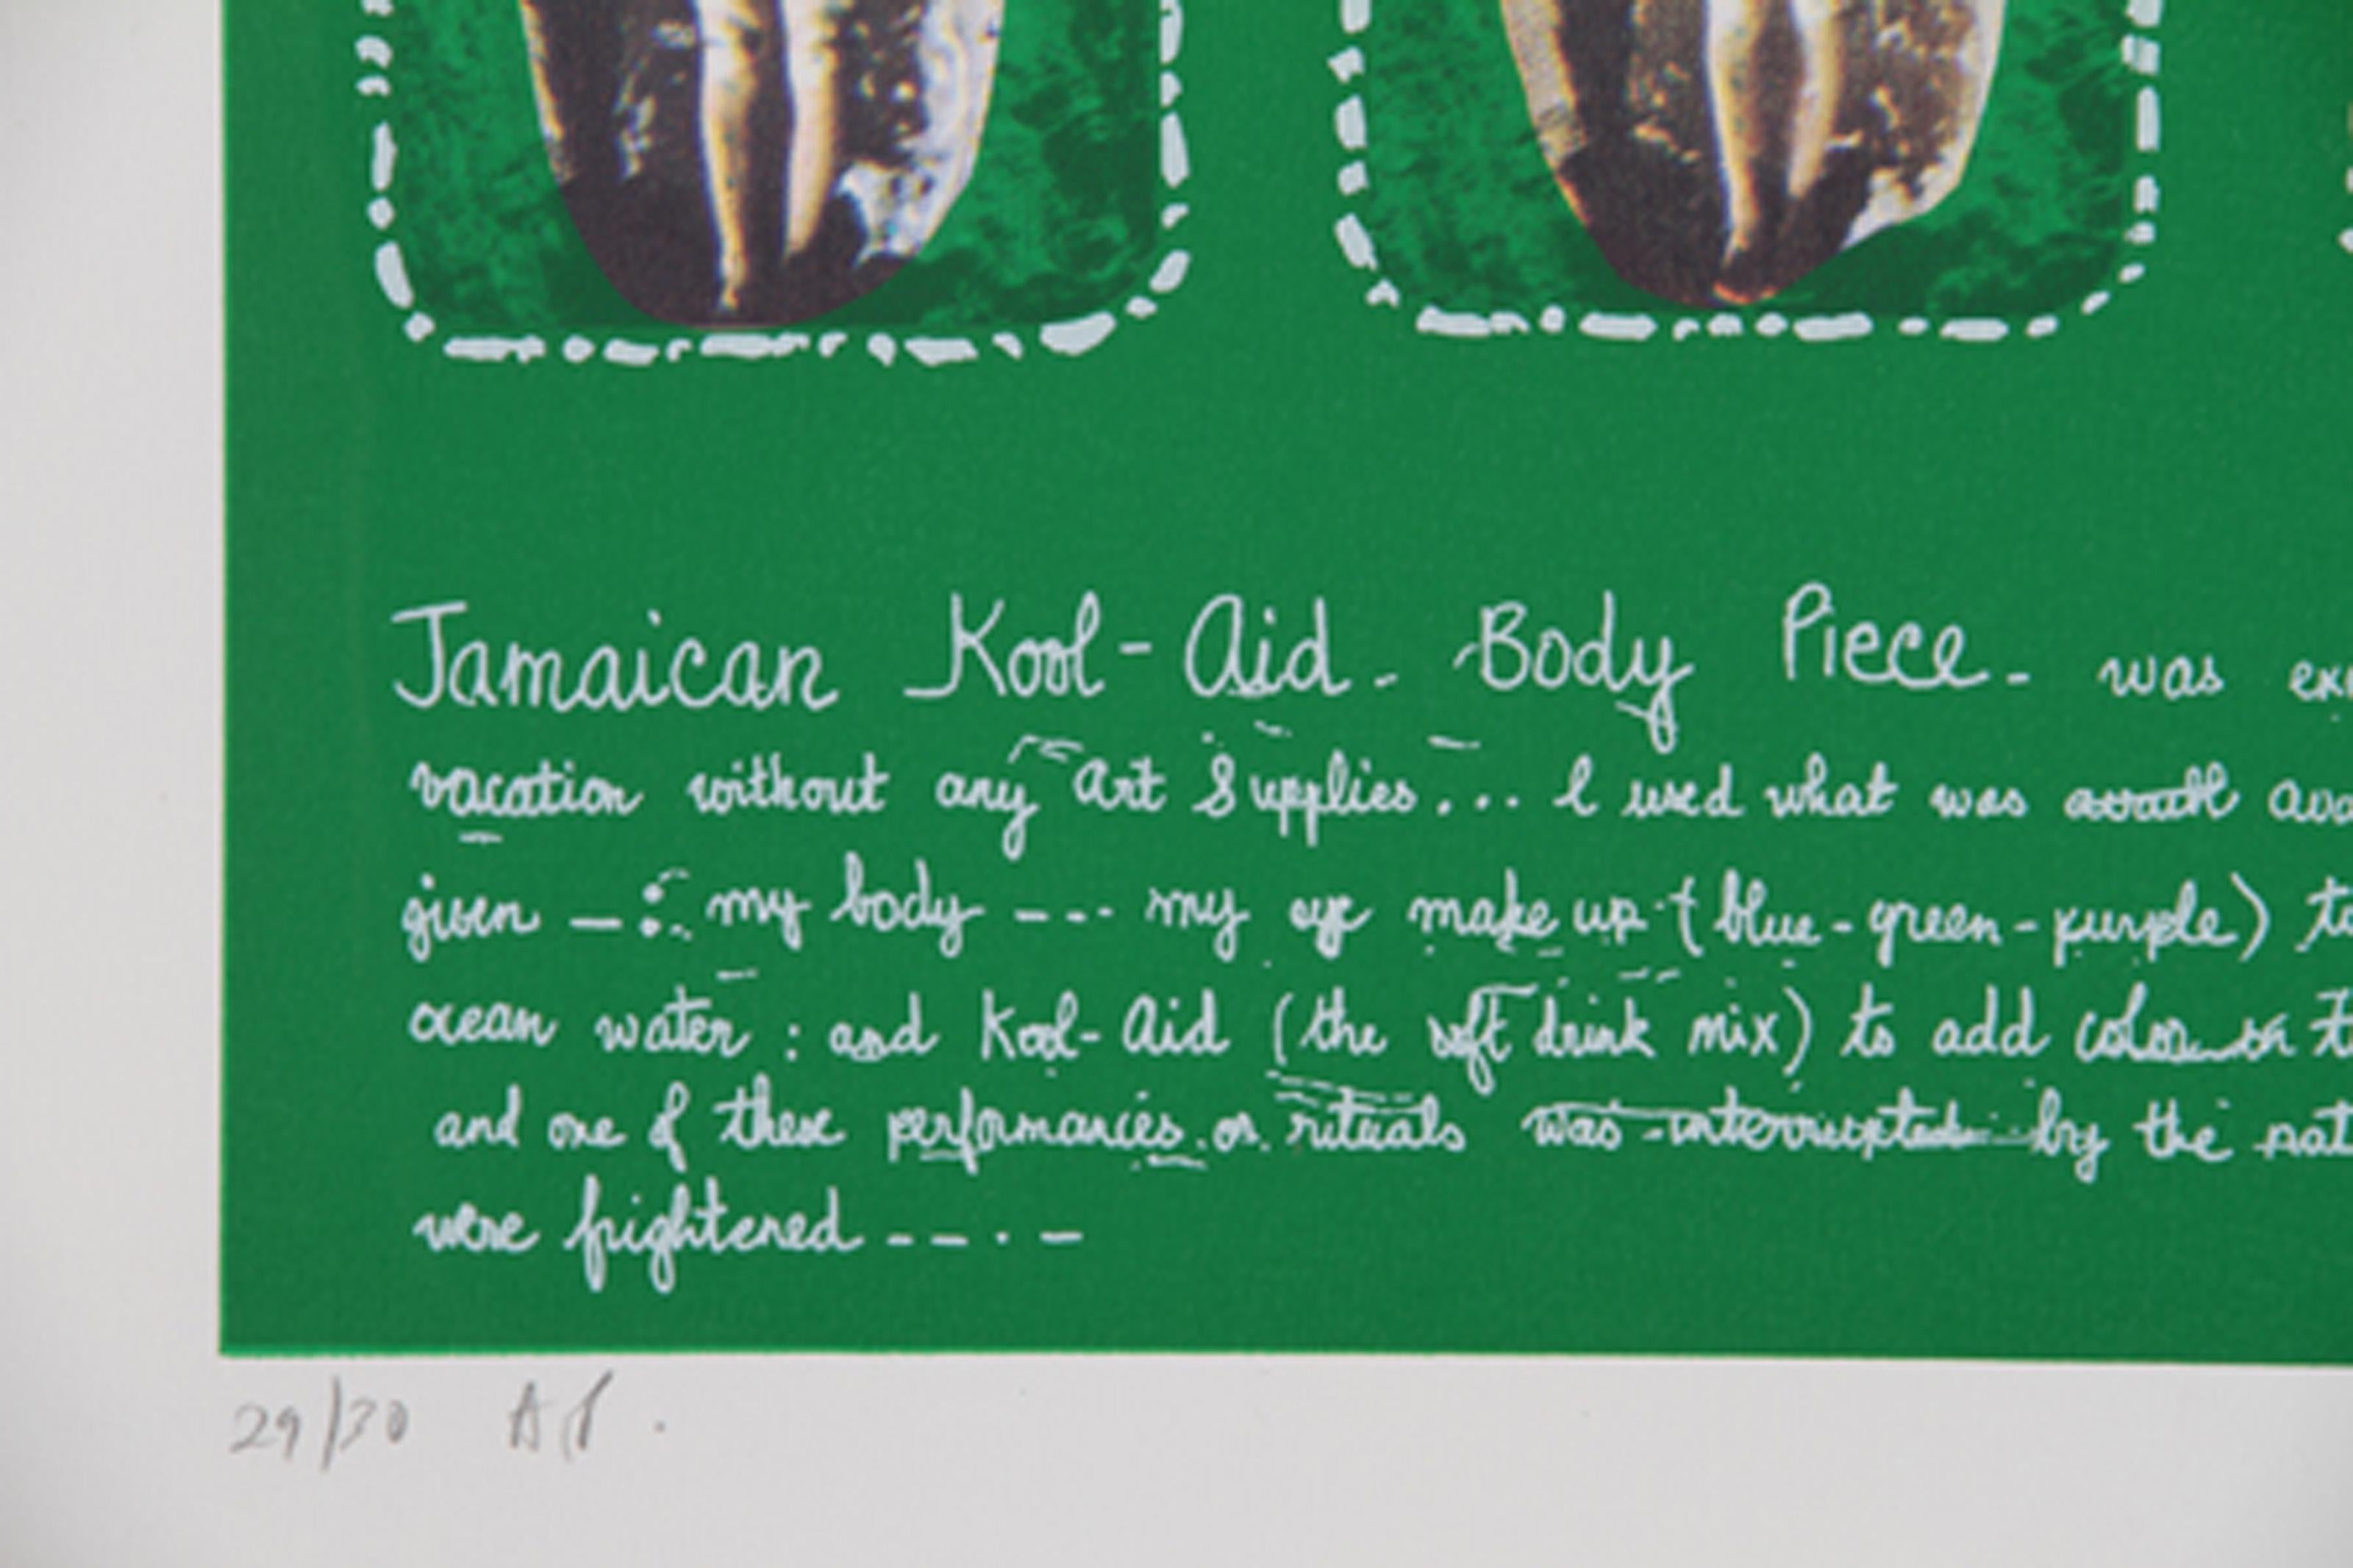 Jamaican Kool-Aid - Body Piece - was ex
vacation without any Art Supplies... I used what was availl ava
given —: my body --- my eye make up (blue-green-purple) to
ocean water : and Kool-Aid (the soft drink mix) to add color or t
and one of these performances or rituals was interrupted by the nat
were frightened --.—
29/30 AP.